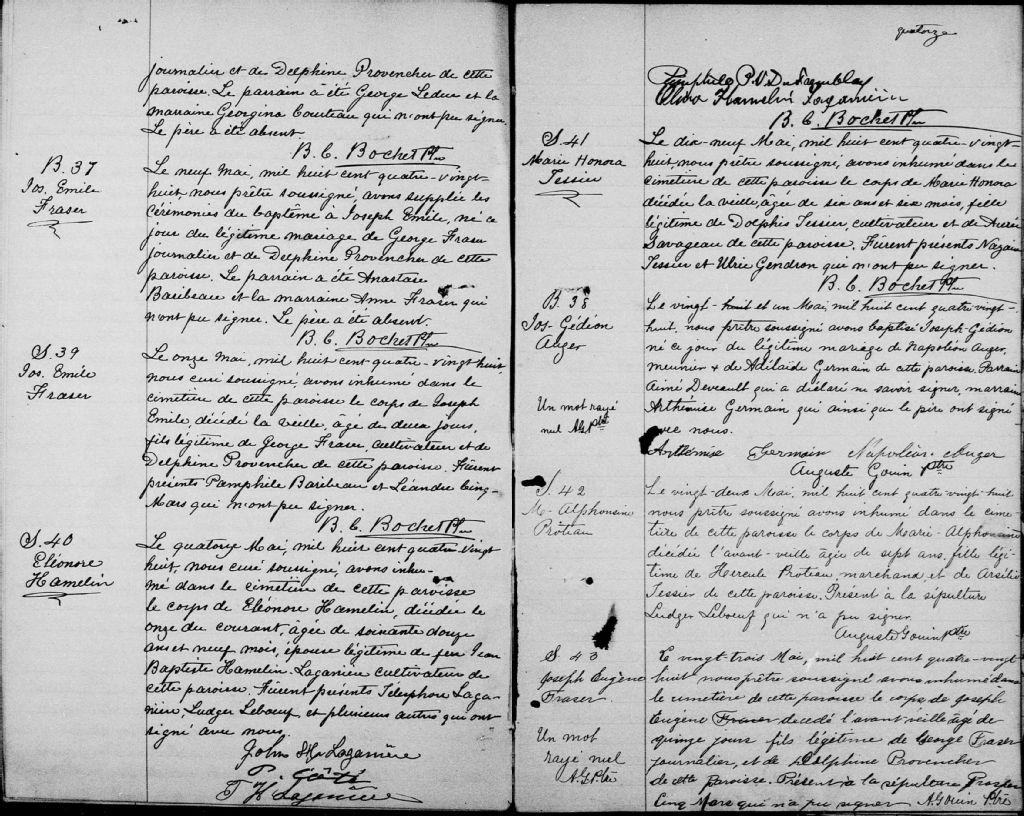 journalier et de Delphine Provencher de cette
paroisse. Le parrain a été George Leduc et la
marraine Georgina Couteau qui n'ont pu signer.
Le père a été absent.
B. C. Bochet Ptre
B. 37
Jos. Emile
Fraser
Le neuf Mai, mil huit cent quatre-vingt-
huit, nous prêtre soussigné, avons supplée les
cérémonies du baptême à Joseph Emile, né ce
jour du légitime mariage de George Fraser
journalier et de Delphine Provencher de cette
paroisse. Le parrain a été Anastase
Baribeau et la marraine Anne Fraser qui
n'ont pu signer. Le père a été absent.
B. C. Bochet Ptre
S. 39
Jos. Emile
Fraser
Le onze Mai, mil huit cent quatre-vingt huit
nous curé soussigné, avons inhumé dans le
cimetière de cette paroisse le corps de Joseph
Emile, décédé la veille, âgé de deux jours,
fils légitime de George Fraser cultivateur et de
Delphine Provencher de cette paroisse. Fûrent
présents Pamphile Baribeau et Léandre Cinq-
Mars qui n'ont pu signer.
B. C. Bochet Ptre
S. 40
Eléonore
Hamelin
Le quatorze Mai, mil huit cent quatre vingt
huit, nous curé soussigné, avons inhu-
mé dans le cimetière de cette paroisse
le corps de Eléonore Hamelin, décédée le
onze du courant, âgée de soixante douze
ans et neuf mois, épouse légitime de feu Jean
Baptiste Hamelin-Laganière cultivateur de
cette paroisse. Fûrent présents Télesphore Laga-
nière, Ludger Leboeuf et plusieurs autres qui ont
signé avec nous
John H. Laganière
T H Laganière
quatorze
Pamphile P.V. Du Tremblay
Oliva Hamelin Laganière
B. C. Bochet Ptre
S. 41
Marie Honora
Tessier
Le dix-neuf Mai, mil huit cent quatre-vingt-
huit, nous prêtre soussigné, avons inhumé dans le
cimetière de cette paroisse le corps de Marie Honora
décédée la veille, âgée de six ans et six mois, fille
légitime de Dolphis Tessier, cultivateur et de
Savageau de cette paroisse. Fûrent présents Nazaire
Tessier et Ulric Gendron qui n'ont pu signer.
B. C. Bochet Ptre
B. 38
Jos-Gédéon
Auger
Le vingt-huit et un Mai, mil huit cent quatre vingt-
huit, nous prêtre soussigné avons baptisé Joseph Gédéon
né ce jour du légitime mariage de Napoléon Auger,
meunier & de Adelaïde Germain de cette paroisse. Parrain
Aimé Devault qui a déclaré ne savoir signer, marraine
Arthémise Germain qui ainsi que le père ont signé
avec nous.
Un mot rayé
nul AG Ptre
Arthémise Germain Napoléon Auger
Auguste Gouin Ptre
S. 42
M- Alphonsine
Proteau
Le vingt-deux Mai, mil huit cent quatre vingt-huit
nous prêtre soussigné avons inhumé dans le cime-
tière de cette paroisse le corps de Marie-Alphonsine
décédée l'avant-veille âgée de sept ans, fille légi-
time de Hercule Proteau, marchand, et de Arsélie
Tessier de cette paroisse. Présent à la sépulture
Ludger Leboeuf qui n'a pu signer.
Auguste Gouin Ptre
S 43
Joseph Eugène
Fraser.
Le vingt-trois Mai, mil huit cent quatre-vingt
huit nous prêtre soussigné avons inhumé dans
le cimetière de cette paroisse le corps de Joseph
Eugène Fraser décédé l'avant veille âgé de
quinze jours fils légitime de George Fraser
journalier, et de Delphine Provencher
de cette paroisse. Présent à la sépulture Prosper
Cinq Mars qui n'a pu signer A. Gouin Ptre
Un mot
rayé nul
A.G Ptre